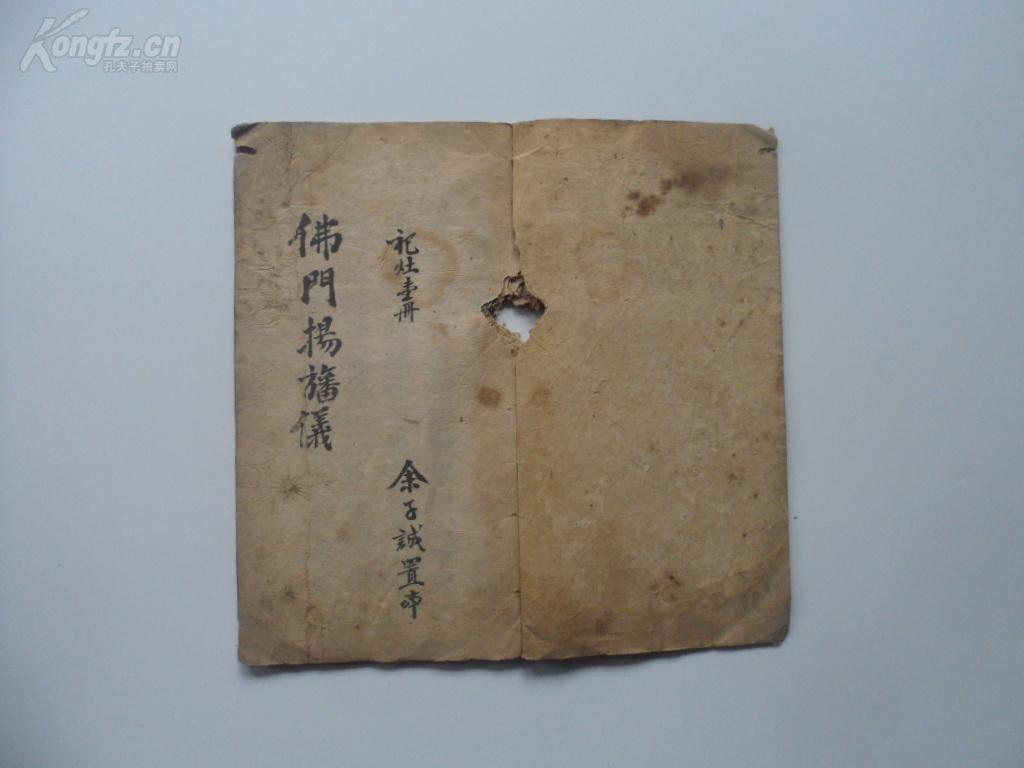 Kongfz.cn
孔夫子拍卖网
佛門揚旛儀
祀灶壹冊
余子誠置